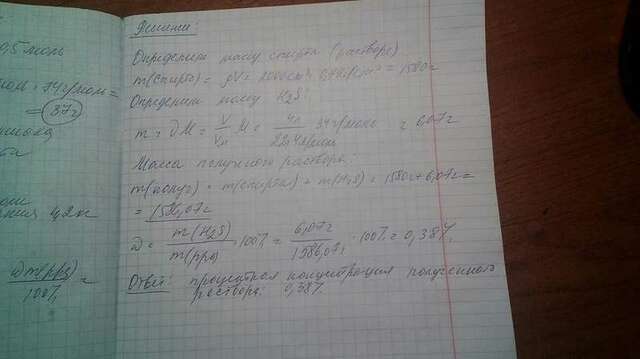 0,5 моль
моль · 74 г/моль =
= 37 г
4,2 л
ωm(р-р)
100%
=
Решение:
Определим массу спирта (раствора)
m(спирта) = ρV = 2000 см³ · 0,79 г/см³ = 1580 г
Определим массу H₂S:
m = νM = V/Vm · M = 4л / 22,4 л/моль · 34 г/моль = 6,07 г
Масса полученного раствора:
m(получ) = m(спирта) + m(H₂S) = 1580г + 6,07г =
= 1586,07г
ω = m(H₂S) / m(р-ра) · 100% = 6,07г / 1586,07г · 100% = 0,38%.
Ответ: процентная концентрация полученного
раствора: 0,38%